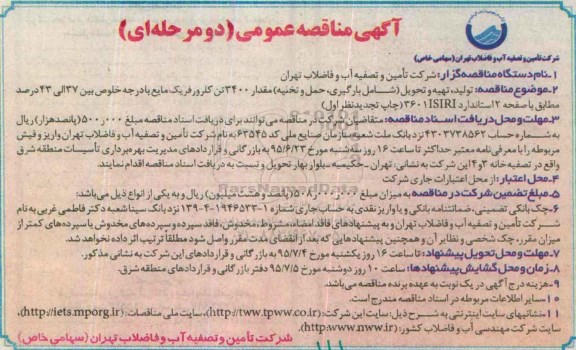 آگهی مناقصه عمومی (دو مرحله‌ای)
شرکت تأمین و تصفیه آب و فاضلاب تهران (سهامی خاص)
۱-نام دستگاه مناقصه‌گزار: شرکت تأمین و تصفیه آب و فاضلاب تهران
۲-موضوع مناقصه: تولید، تهیه و تحویل (شامل بارگیری، حمل و تخلیه) مقدار ۳۴۰۰ تن کلرورفریک مایع با درجه خلوص بین ۳۷ الی ۴۳ درصد
مطابق با صفحه ۲ استاندارد ISIRI ۳۶۰۱ (چاپ تجدیدنظر اول)
۳-مهلت و محل دریافت اسناد مناقصه: متقاضیان شرکت در مناقصه می توانند برای دریافت اسناد مناقصه مبلغ ۵۰۰,۰۰۰ (پانصدهزار) ریال
به شماره حساب ۴۲۰۳۷۳۸۵۶۲ نزد بانک ملت شعبه سازمان صنایع ملی کد ۶۳۵۴۵ به نام شرکت تأمین و تصفیه آب و فاضلاب تهران واریز و فیش
مربوطه را با معرفی نامه معتبر حداکثر تا ساعت ۱۶ روز سه شنبه مورخ ۹۵/۶/۲۳ به بازرگانی و قراردادهای مدیریت بهره برداری تأسیسات منطقه شرق
واقع در تصفیه خانه ۳ و ۴ این شرکت به نشانی: تهران - حکیمیه - بلوار بهار تحویل و نسبت به دریافت اسناد مناقصه اقدام نمایند.
۴-محل اعتبار: از محل اعتبارات جاری شرکت
۵-مبلغ تضمین شرکت در مناقصه به میزان مبلغ ۵۰۸,۰۰۰,۰۰۰ (پانصد و هشت میلیون) ریال و به یکی از انواع ذیل می باشد:
۶-چک بانکی تضمینی، ضمانتنامه بانکی و یا واریز نقدی به حساب جاری شماره ۱-۱۹۴۶۵۳۳-۴-۱۳۹ نزد بانک سینا شعبه دکتر فاطمی غربی به نام
شرکت تأمین و تصفیه آب و فاضلاب تهران و به پیشنهادهای فاقد امضاء، مشروط، مخدوش، فاقد سپرده و سپرده های مخدوش یا سپرده های کمتر از
میزان مقرر، چک شخصی و نظایر آن و همچنین پیشنهادهایی که بعد از انقضای مدت مقرر واصل شود مطلقا ترتیب اثر داده نخواهد شد.
۷-مهلت و محل تحویل پیشنهاد: تا ساعت ۱۶ روز یکشنبه مورخ ۹۵/۷/۴ به بازرگانی و قراردادهای این شرکت به نشانی مذکور.
۸-زمان و محل گشایش پیشنهادها: ساعت ۱۰ روز دوشنبه مورخ ۹۵/۷/۵ دفتر بازرگانی و قراردادهای منطقه شرق.
۹-هزینه درج آگهی در یک نوبت به عهده برنده مناقصه می باشد.
۱۰-سایر اطلاعات مربوطه در اسناد مناقصه مندرج است.
۱۱-نشانیهای سایت اینترنتی به شرح ذیل: سایت این شرکت: (http://tww.tpww.co.ir)، سایت ملی مناقصات: (http://iets.mporg.ir)،
سایت شرکت مهندسی آب و فاضلاب کشور: (http:www.nww.ir)
شرکت تأمین و تصفیه آب و فاضلاب تهران (سهامی خاص)